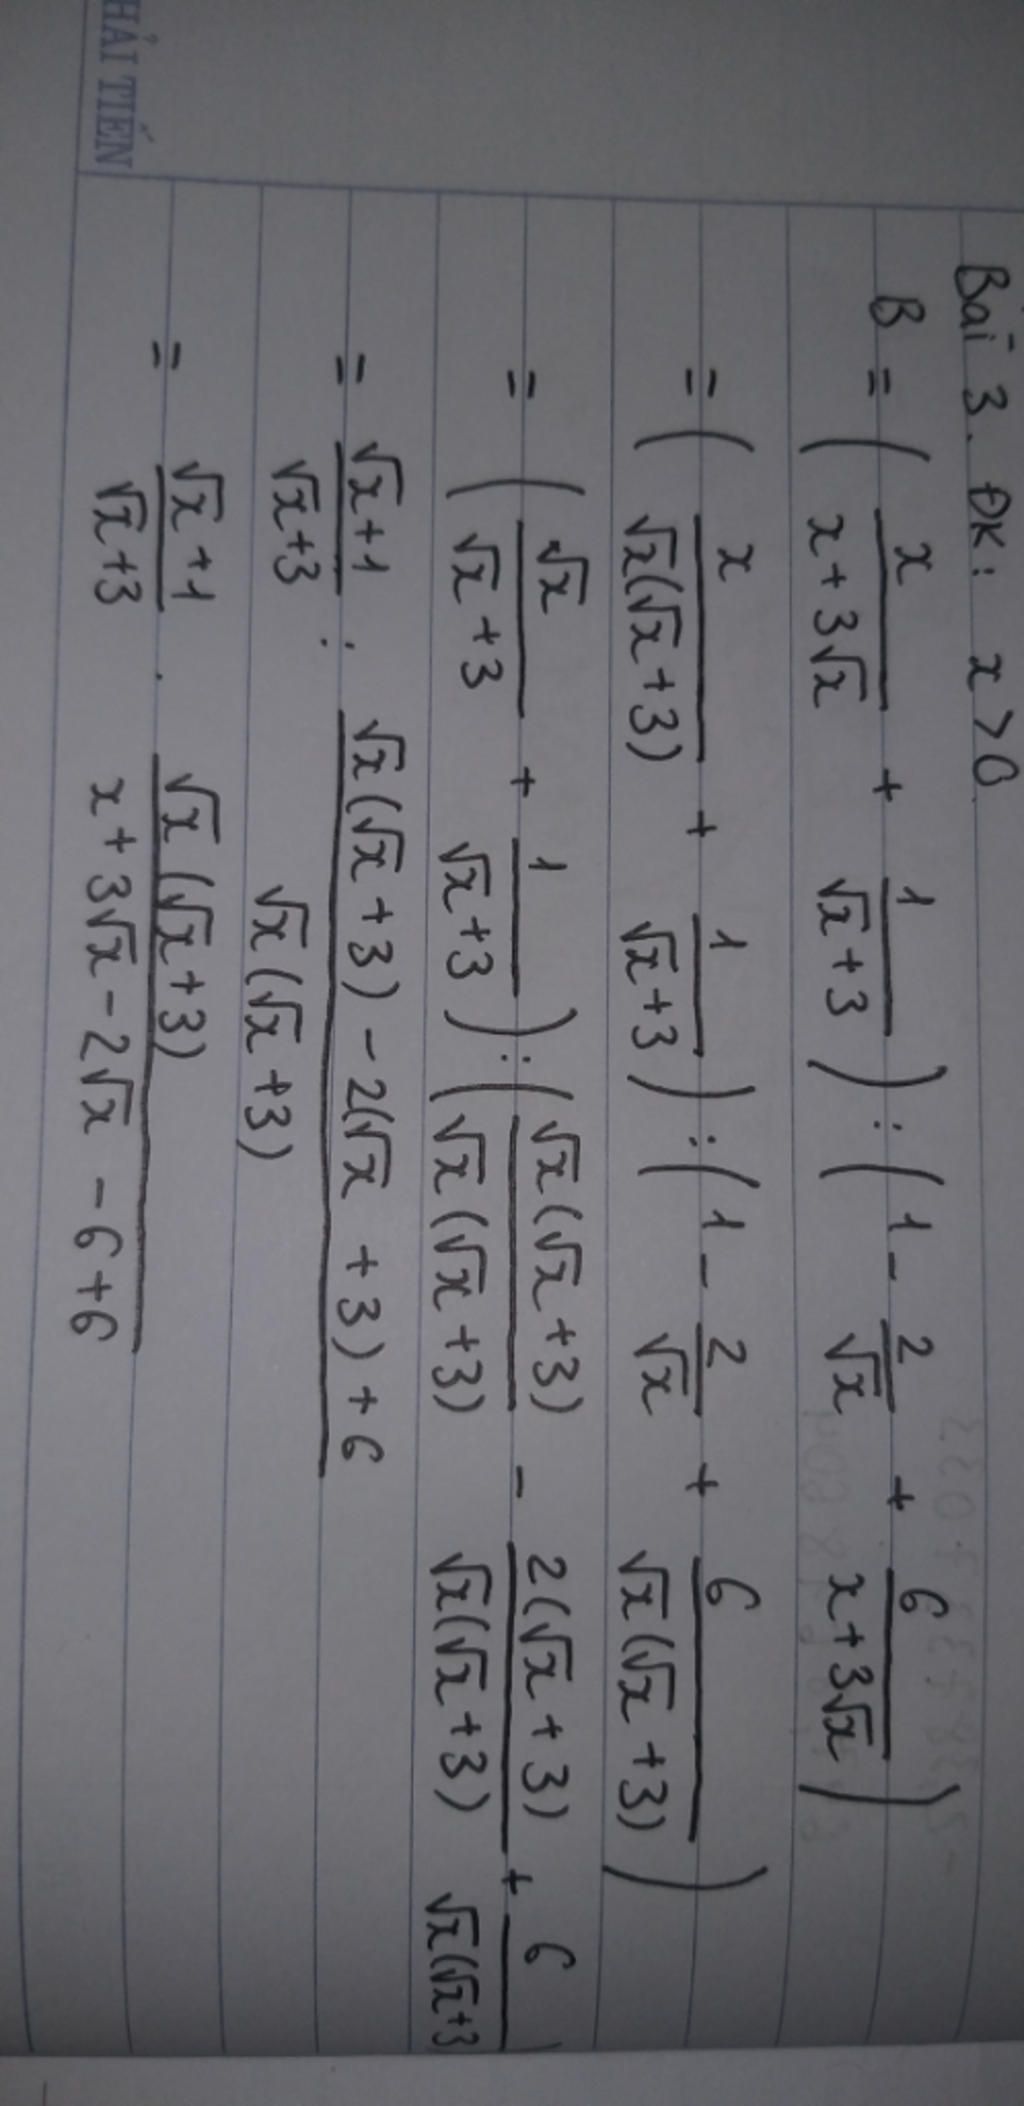 Bài 3. ĐK: x > 0
B = ( x/(x + 3√x) + 1/(√x + 3) ) : ( 1 - 2/√x + 6/(x + 3√x) )
= ( x/(√x(√x + 3)) + 1/(√x + 3) ) : ( 1 - 2/√x + 6/(√x(√x + 3)) )
= ( √x/(√x + 3) + 1/(√x + 3) ) : ( √x(√x + 3)/(√x(√x + 3)) - 2(√x + 3)/(√x(√x + 3)) + 6/(√x(√x + 3
= (√x + 1)/(√x + 3) : (√x(√x + 3) - 2(√x + 3) + 6)/(√x(√x + 3))
= (√x + 1)/(√x + 3) . √x(√x + 3)/(x + 3√x - 2√x - 6 + 6)
HẢI TIẾN